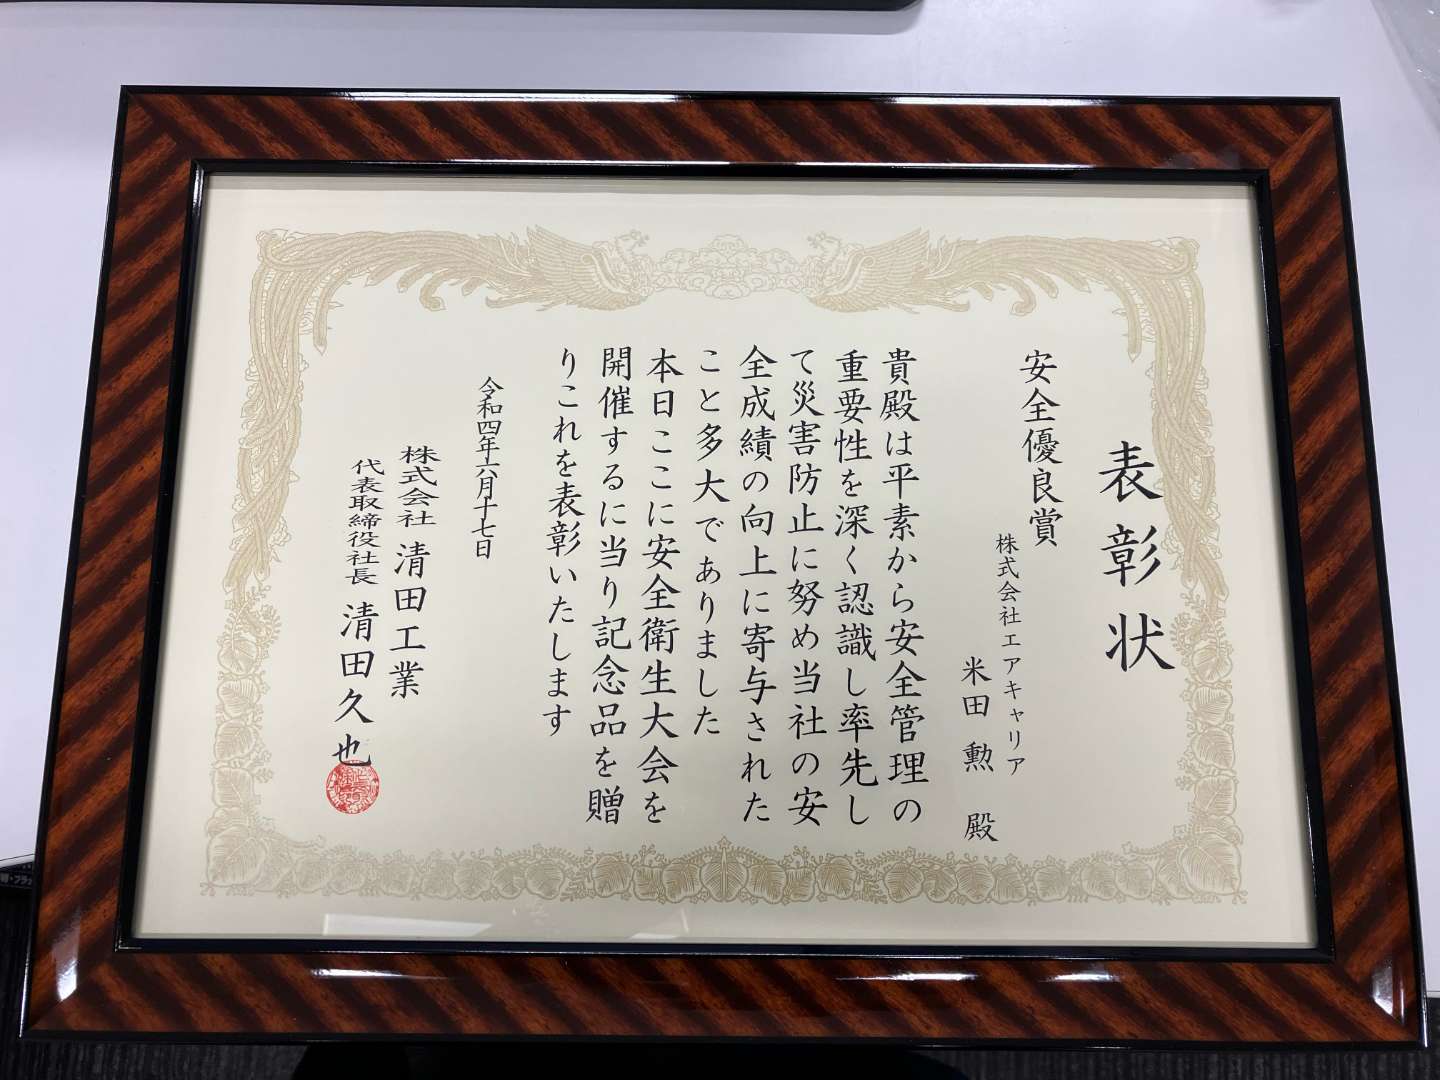 表彰状
安全優良賞
株式会社エアキャリア
米田 勲 殿
貴殿は平素から安全管理の
重要性を深く認識し率先し
て災害防止に努め当社の安
全成績の向上に寄与された
こと多大でありました
本日ここに安全衛生大会を
開催するに当り記念品を贈
りこれを表彰いたします
令和四年六月十七日
株式会社 清田工業
代表取締役社長 清田久也